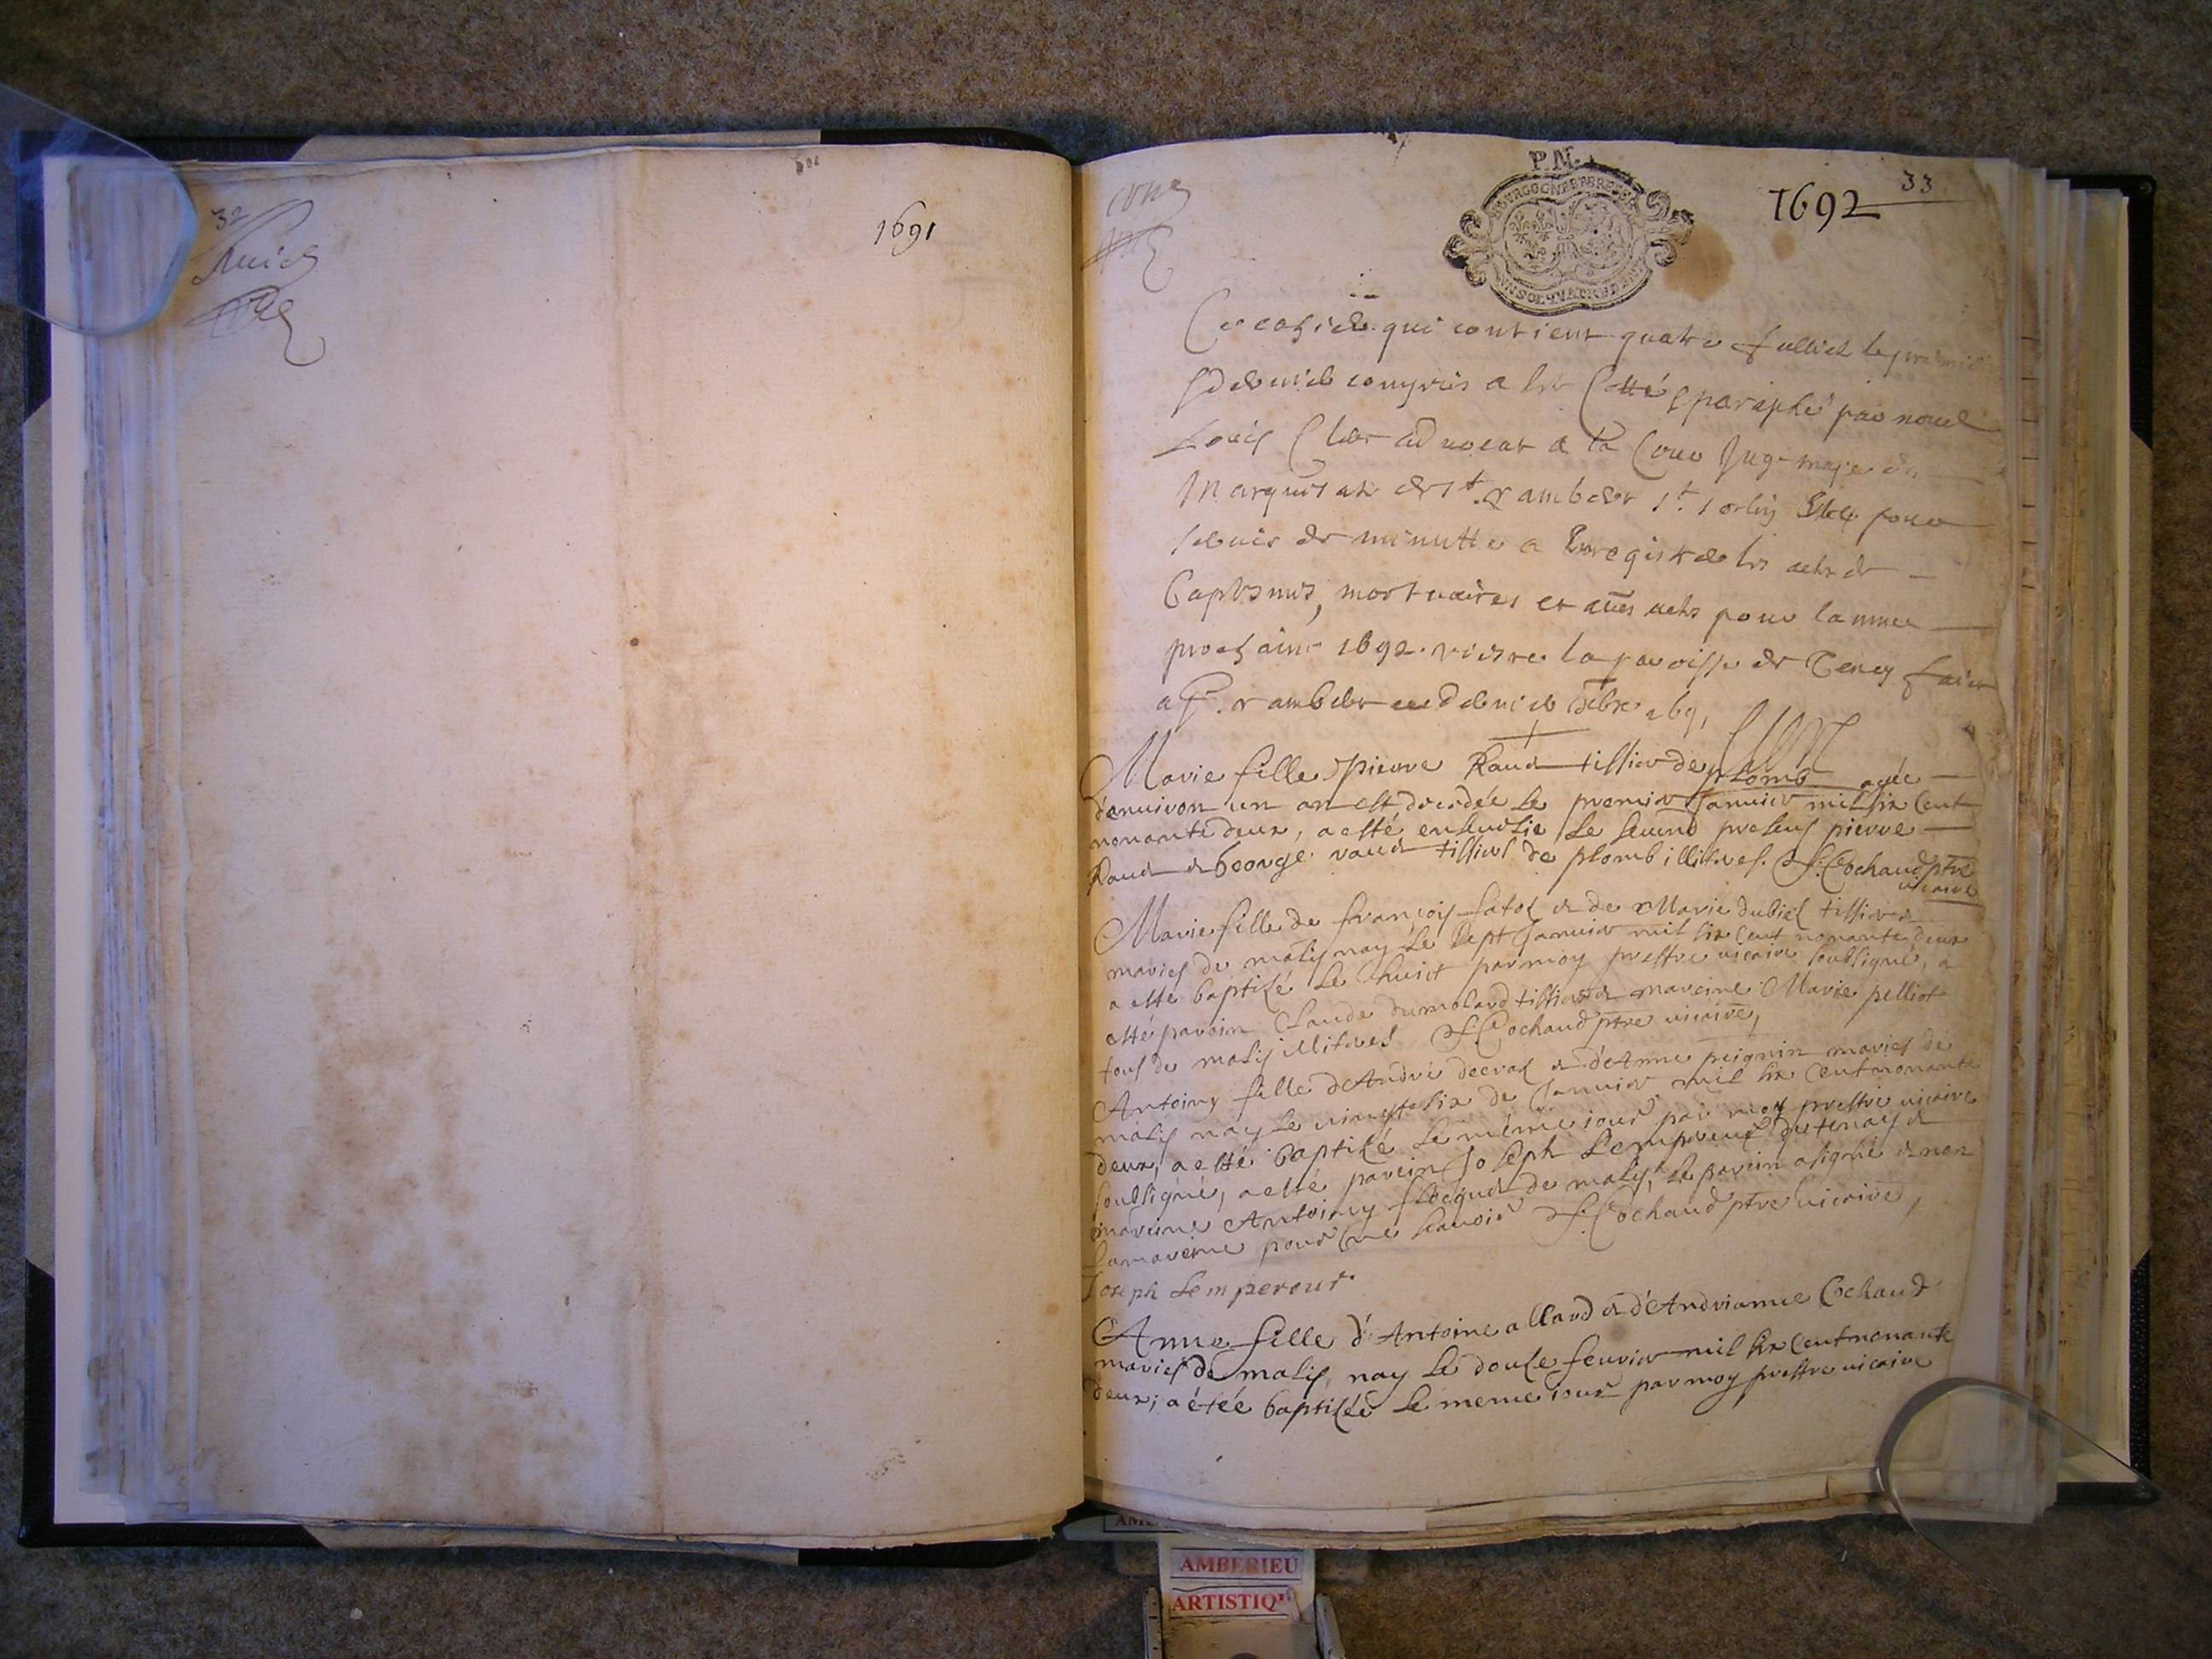 32
huict
1691
une
P.N.
BOURGOGNE ET BRESSE
1692
33
Ce cahier qui contient quatre feulliet le premier
& dernier compris a esté Cotté & paraphé par nous
Louis Advocat a la Cour Juge maje du
Marquisat de St. Rambert St. Sorlin pour
servir de minutte a Enregistrer les actes de
Baptesmes, mortuaires et aues actes pour lannee
prochaine 1692. riesre la paroisse de Teney faict
a St. rambert ce dernier Xbre 1691
Marie fille Pierre Raud tissier de plomb agée
d'enuiron un an est decedée le premier Januier mil six Cent
nonante deux, a esté enseuelie le second presens pierre
Raud & George raud tissiers de plomb illiteres. F. Cochaud ptre
vicaire
Marie fille de françois fatol & de Marie dubiel tissier &
mariés de malis nay le sept Januier mil six Cent nonante deux
a esté baptisé le huict par moy prestre uicaire soubsigné, a
esté parain Claude dumolard tissier & mareine Marie pelliot
tous de malis illiteres F. Cochaud ptre uicaire,
Antoiny fille d'André decral & d'Anne peignin mariés de
malis nay le uingt six de Januier mil six Cent nonante
deux, a esté baptisé le même iour par moy prestre uicaire
soubsigné, a esté parein Joseph Lempereur de tenay &
mareine Antoiny flocquet de malis, le parein a signé & non
la mareine pour ne scauoir F. Cochaud ptre uicaire,
Joseph Lempereur
Anne fille d'Antoine allard & d'Andrianne Cochaud
mariés de malis, nay le douse feurier mil six Cent nonante
deux; a étée baptisée le meme iour par moy prestre uicaire
AMBERIEU
ARTISTIQU